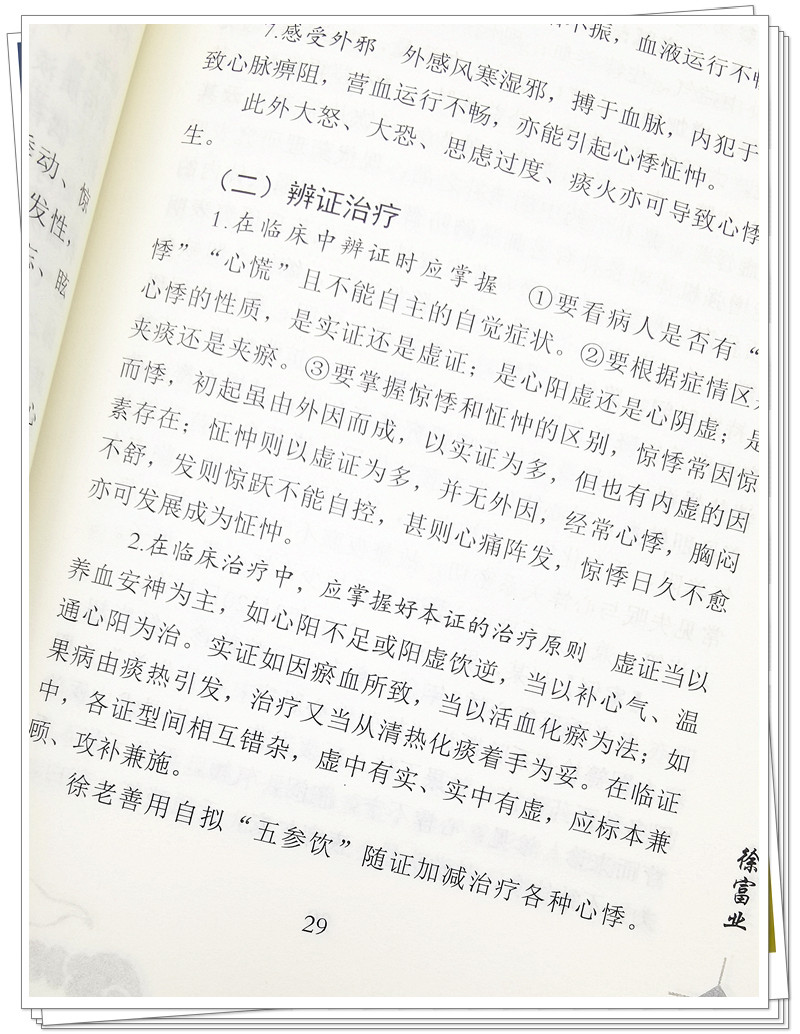 不振，血液运行不畅
7.感受外邪　外感风寒湿邪，搏于血脉，内犯于
致心脉痹阻，营血运行不畅，亦能引起心悸怔忡。
此外大怒、大恐、思虑过度、痰火亦可导致心悸
生。
（二）辨证治疗
1.在临床中辨证时应掌握　①要看病人是否有“
悸”“心慌”且不能自主的自觉症状。②要根据症情区
心悸的性质，是实证还是虚证；是心阳虚还是心阴虚；是
夹痰还是夹瘀。③要掌握惊悸和怔忡的区别，惊悸常因惊
而悸，初起虽由外因而成，以实证为多，但也有内虚的因
素存在；怔忡则以虚证为多，并无外因，经常心悸，胸闷
不舒，发则惊跃不能自控，甚则心痛阵发，惊悸日久不愈
亦可发展成为怔忡。
2.在临床治疗中，应掌握好本证的治疗原则　虚证当以
养血安神为主，如心阳不足或阳虚饮逆，当以补心气、温
通心阳为治。实证如因瘀血所致，当以活血化瘀为法；如
果病由痰热引发，治疗又当从清热化痰着手为妥。在临证
中，各证型间相互错杂，虚中有实、实中有虚，应标本兼
顾、攻补兼施。
徐老善用自拟“五参饮”随证加减治疗各种心悸。
29
徐富业
动、惊
发性，
眩